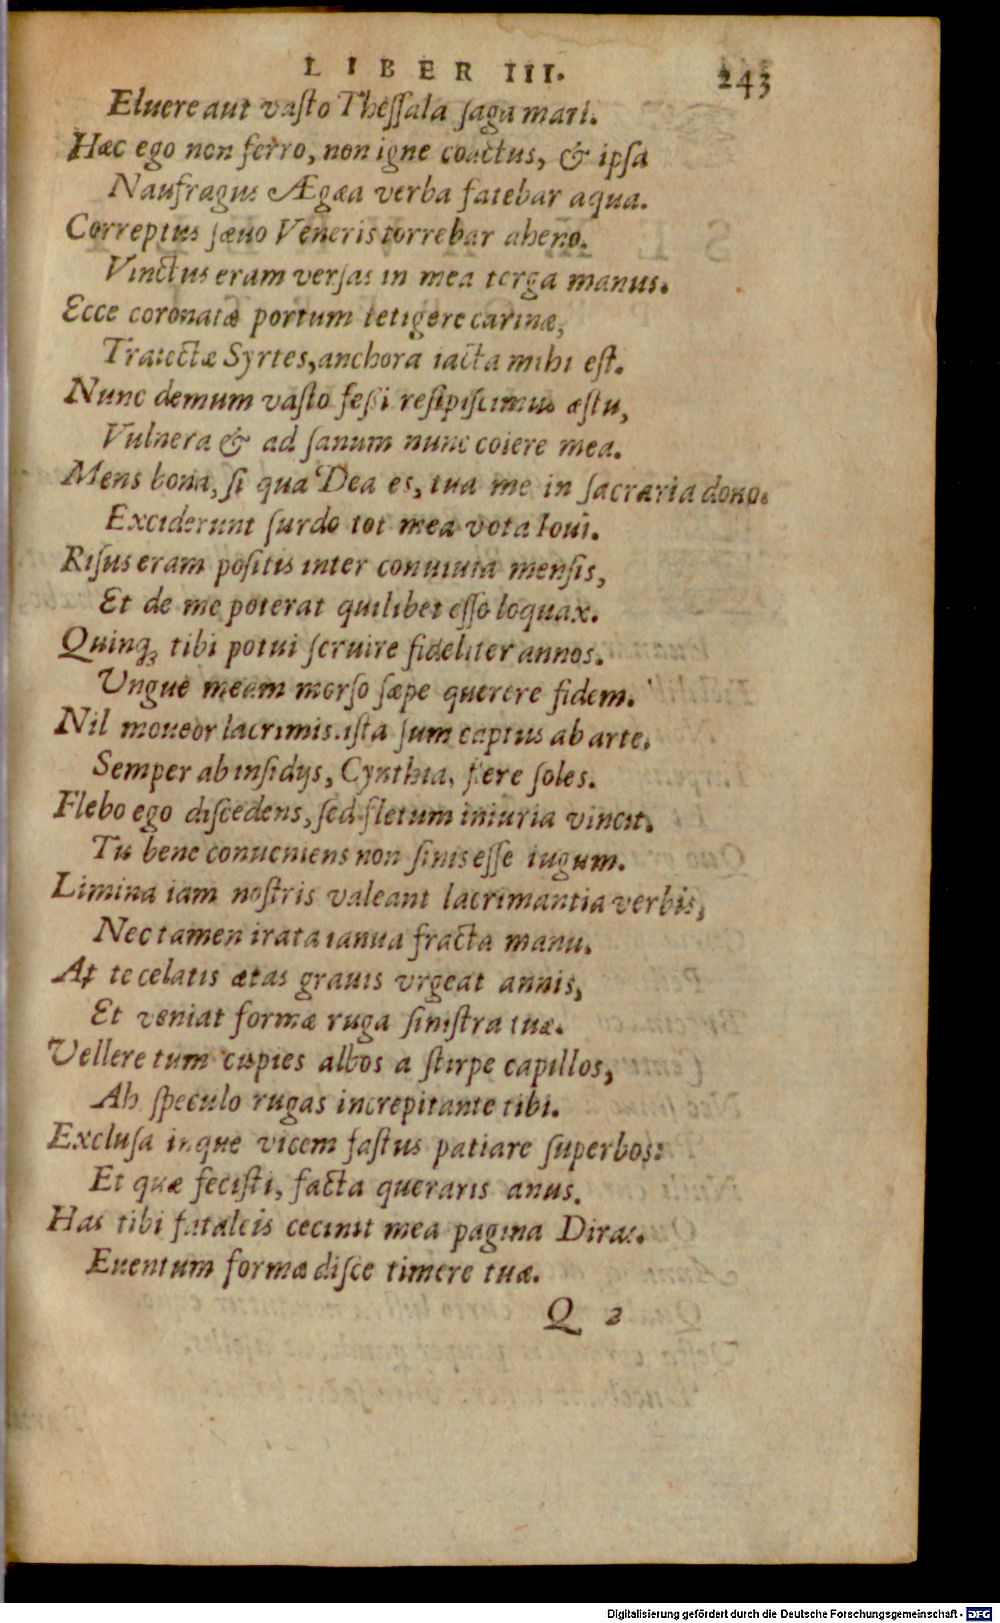 LIBER III. 243
Eluere aut vaſto Theſſala ſaga mari.
Hæc ego non ferro, non igne coactus, & ipſa
Naufragus Ægæa verba fatebar aqua.
Correptus ſæuo Veneris torrebar aheno.
Vinctus eram verſas in mea terga manus.
Ecce coronatæ portum tetigere carinæ,
Traiectæ Syrtes, anchora iacta mihi eſt.
Nunc demum vaſto feſſi reſipiſcimus æſtu,
Vulnera & ad ſanum nunc coiere mea.
Mens bona, ſi qua Dea es, tua me in ſacraria dono.
Exciderunt ſurdo tot mea vota Ioui.
Riſus eram poſitis inter conuiuia menſis,
Et de me poterat quilibet eſſe loquax.
Quinq; tibi potui ſeruire fideliter annos.
Ungue meam morſo ſæpe querere fidem.
Nil moueor lacrimis. iſta ſum captus ab arte.
Semper ab inſidijs, Cynthia, flere ſoles.
Flebo ego diſcedens, ſed fletum iniuria vincit.
Tu bene conueniens non ſinis eſſe iugum.
Limina iam noſtris valeant lacrimantia verbis,
Nec tamen irata ianua fracta manu.
At te celatis ætas grauis vrgeat annis,
Et veniat formæ ruga ſiniſtra tuæ.
Vellere tum cupies albos a ſtirpe capillos,
Ah ſpeculo rugas increpitante tibi.
Excluſa inque vicem faſtus patiare ſuperbos:
Et quæ feciſti, facta queraris anus.
Has tibi fataleis cecinit mea pagina Diras.
Euentum formæ diſce timere tuæ.
Q 2
Digitalisierung gefördert durch die Deutsche Forschungsgemeinschaft - DFG